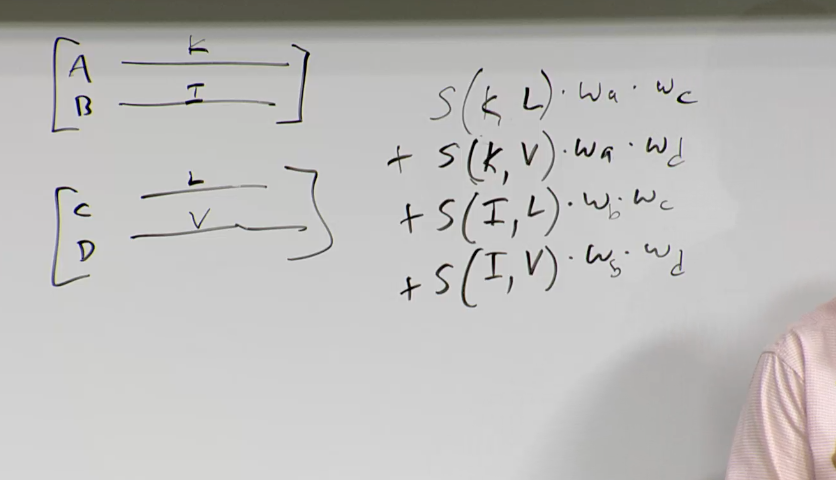 A K
B I
C L
D V
S(K, L) · wa · wc
+ S(K, V) · wa · wd
+ S(I, L) · wb · wc
+ S(I, V) · wb · wd